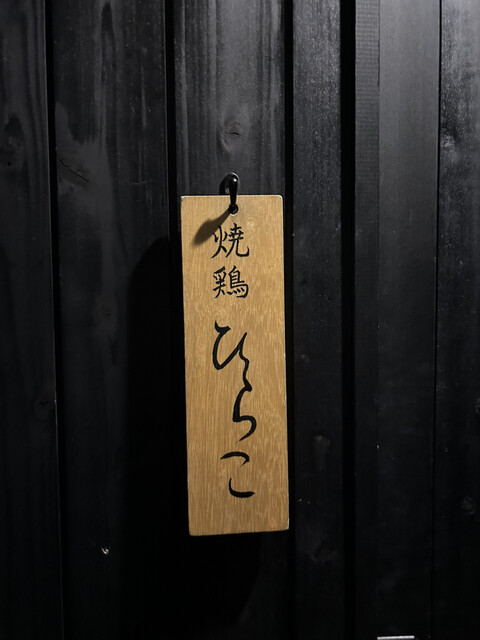 焼鶏 ひらこ